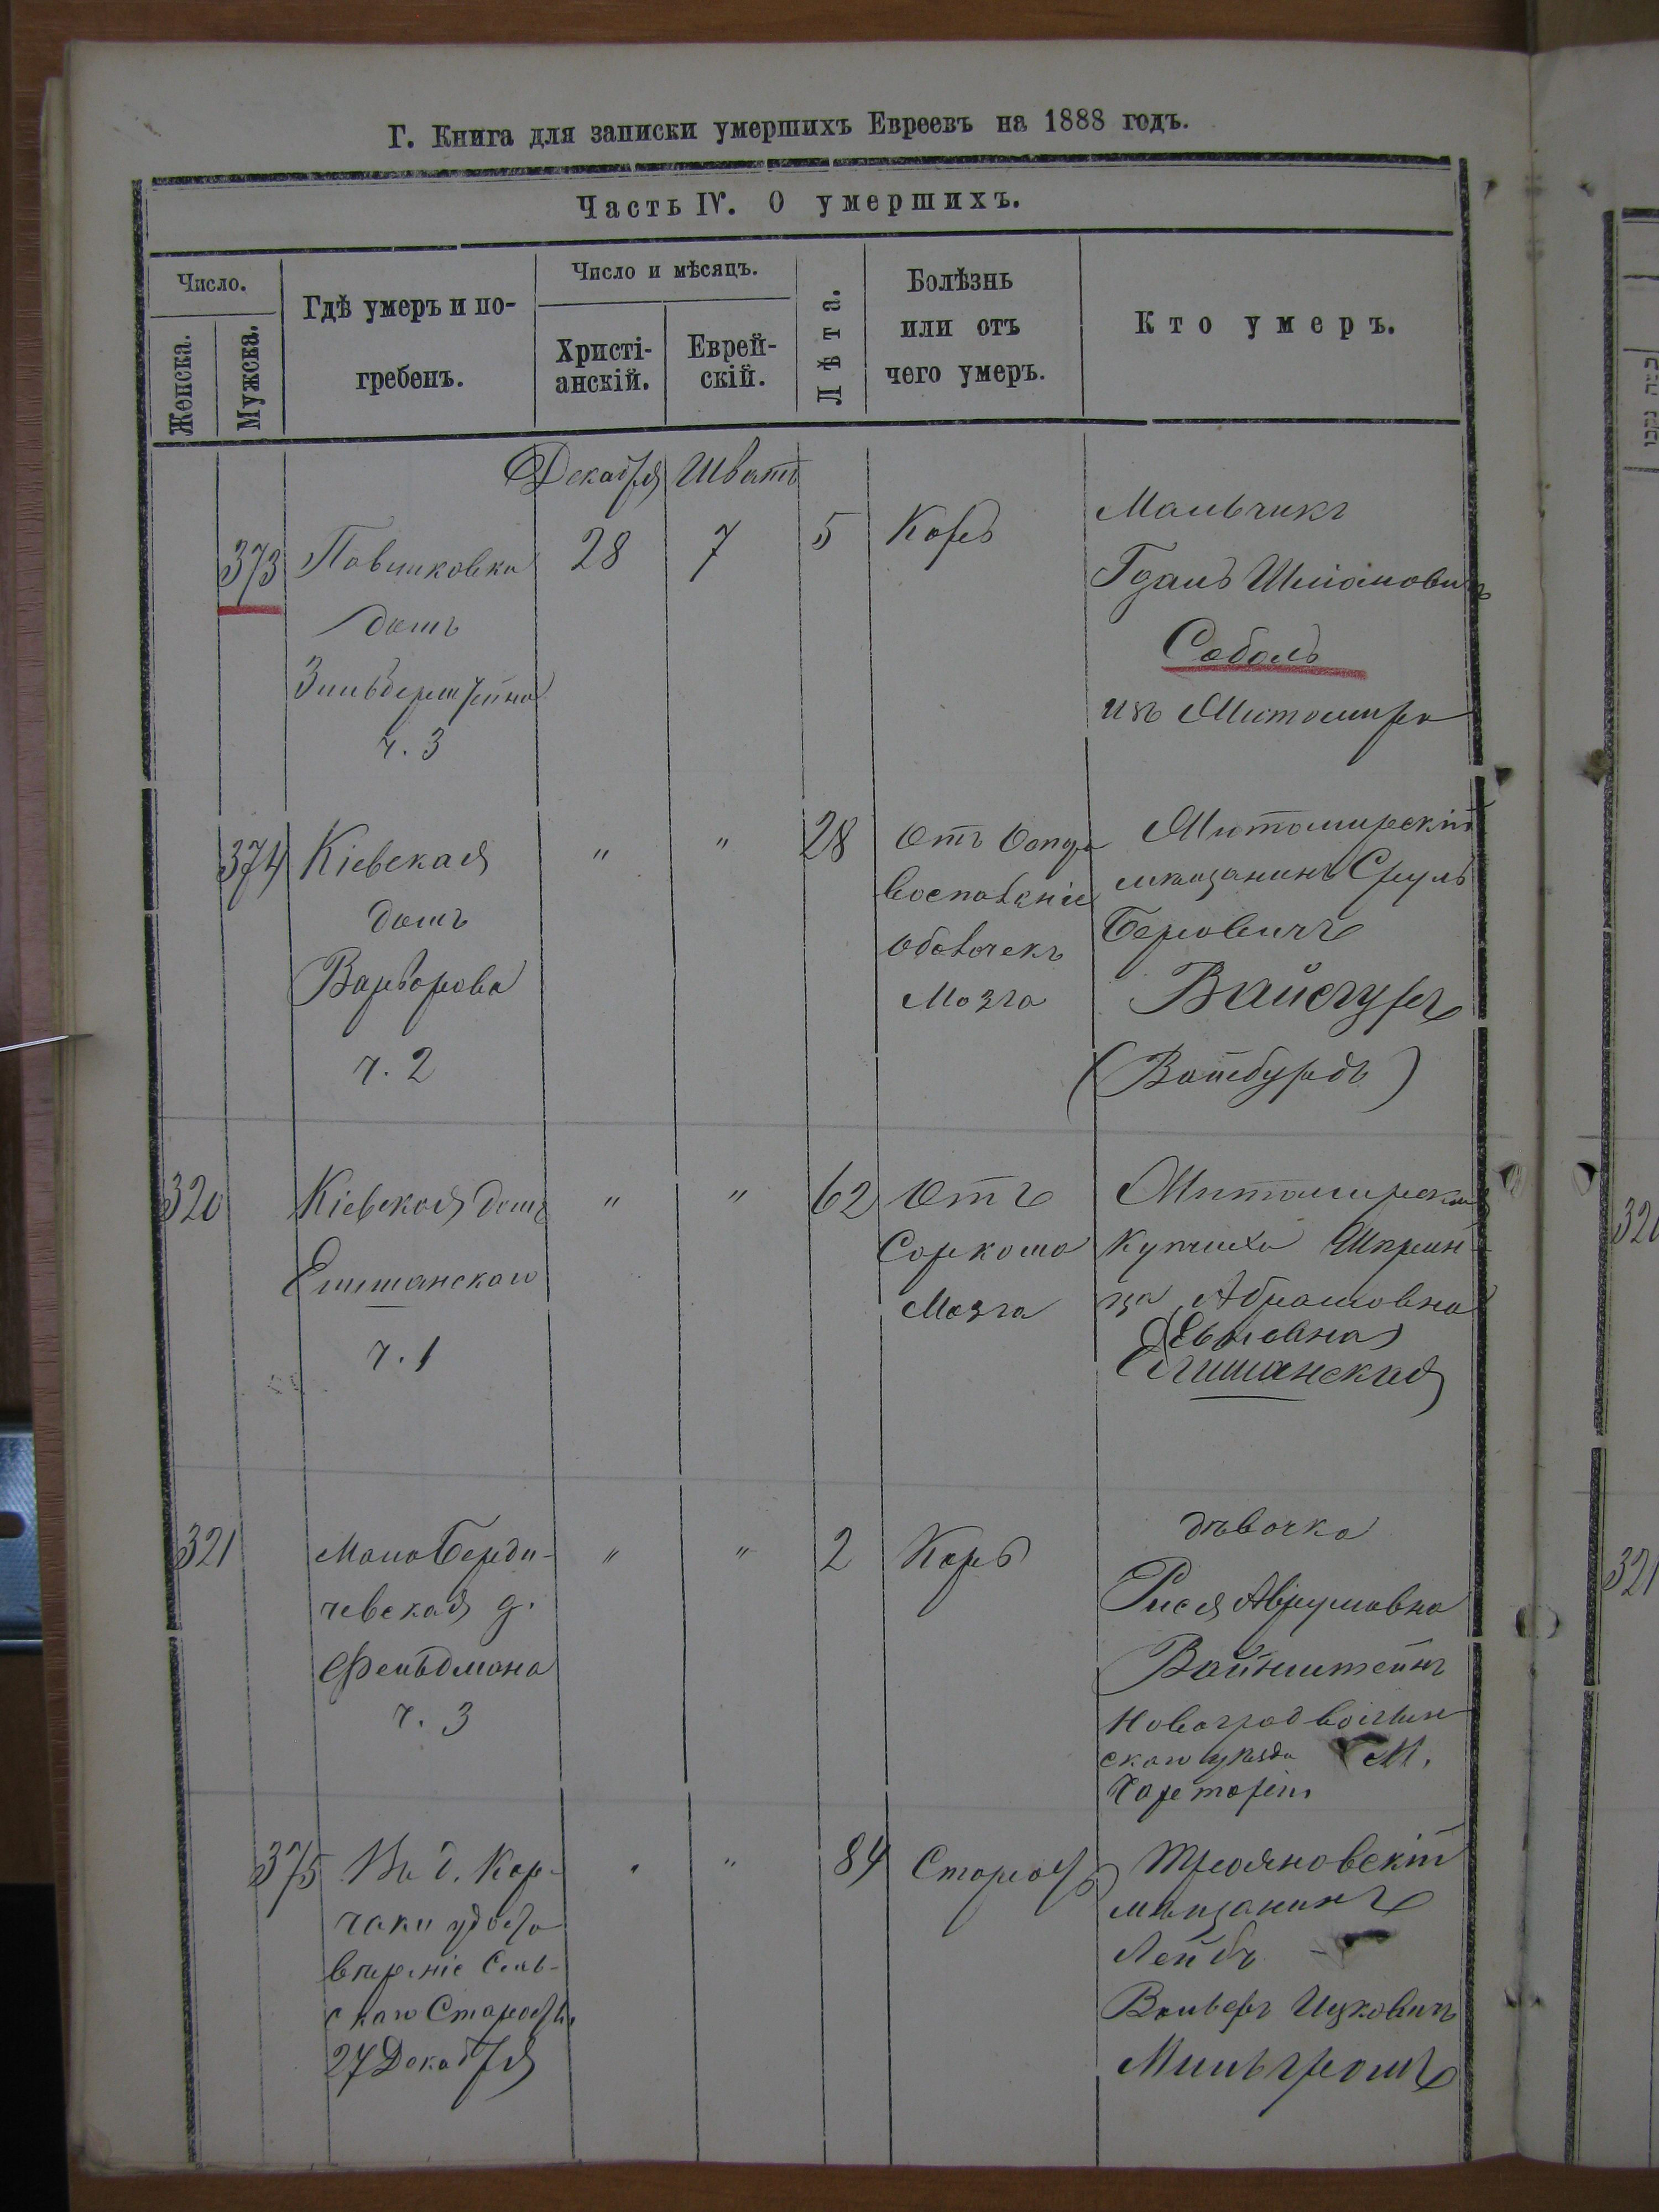 Г. Книга для записки умершихъ Евреевъ на 1888 годъ.
Часть IV. О умершихъ.
Число.
Женска.
Мужска.
Гдѣ умеръ и по-
гребенъ.
Число и мѣсяцъ.
Христі-
анскій.
Еврей-
скій.
Лѣта.
Болѣзнь
или отъ
чего умеръ.
Кто умеръ.
Декабря Шватъ
373
Павликовка
домъ
Зильберштейна
ч. 3
28
7
5
Корь
Мальчикъ
Соболь
изъ Житомира
374
Кіевская
домъ
ч. 2
"
"
28
Отъ
Мозга
Житомирскій
мѣщанинъ Сруль
Беровичъ
Вайсгурх
(Вайсбурдъ)
320
Кіевская домъ
ч. 1
"
"
62
Отъ
Саркома
Мозга
Житомирская
Купчиха Шприн-
ца Абрамовна
321
Мало Берди-
чевская д.
Фельдмана
ч. 3
"
"
2
Корь
дѣвочка
Рися Аврумовна
Вайнштейнъ
Новоградволын
скаго уѣзда М.
375
Въ д. Кор-
чаки удосто
вѣреніе Сель-
скаго Старосты
27 Декабря
"
"
84
Старость
Трояновскій
мѣщанинъ
Лейбъ
Вольфъ Ицковичъ
Мильгромъ
320
321